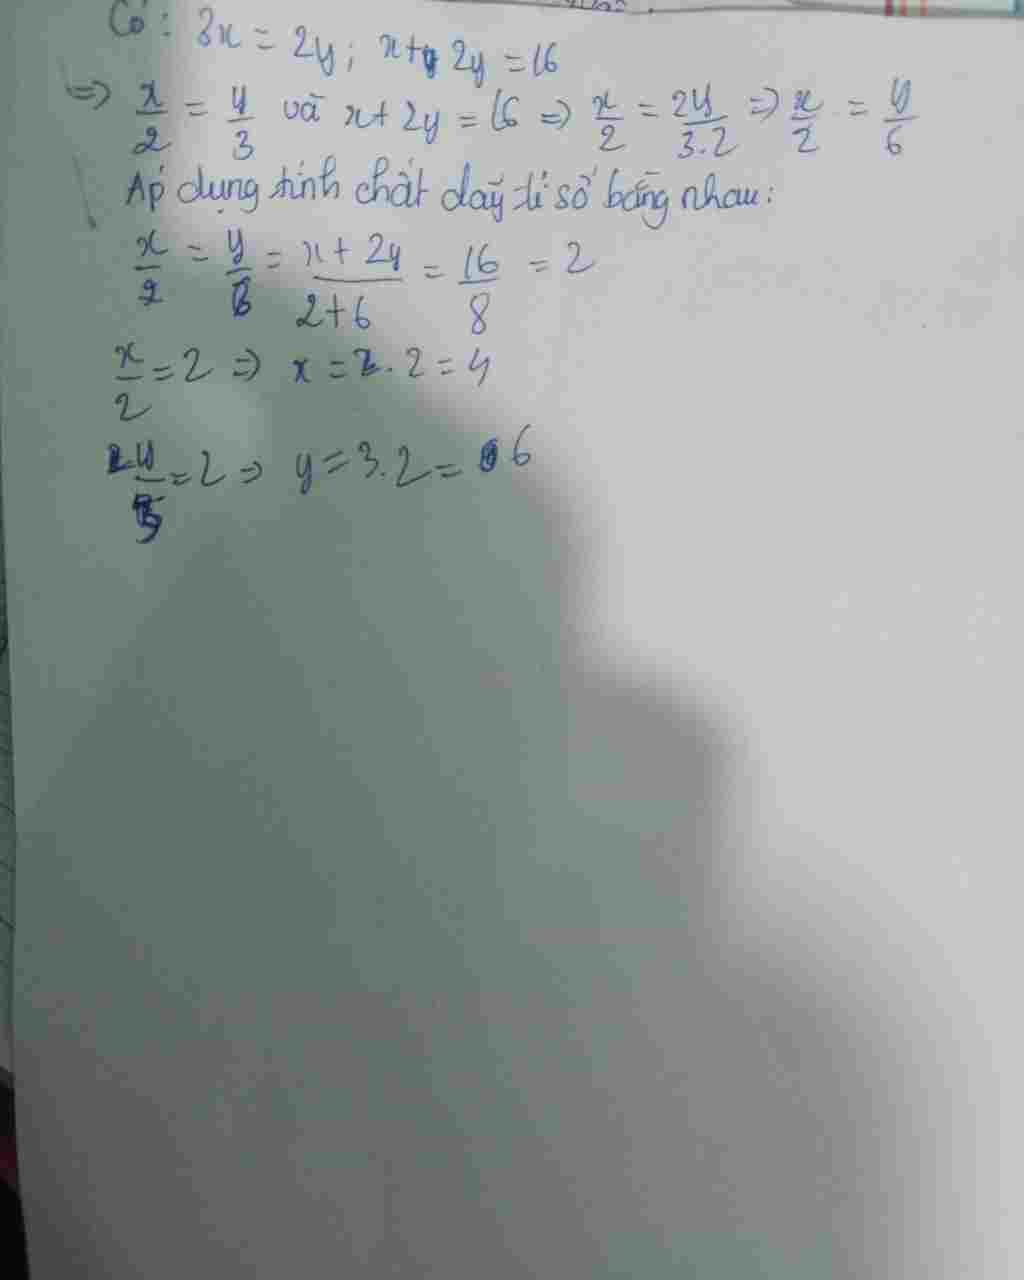 Có : 3x = 2y ; x + 2y = 16
=> x/2 = y/3 và x + 2y = 16 => x/2 = 2y/3.2 => x/2 = y/6
Áp dụng tính chất dãy tỉ số bằng nhau:
x/2 = y/6 = x + 2y/2+6 = 16/8 = 2
x/2 = 2 => x = 2.2 = 4
y/3 = 2 => y = 3.2 = 6